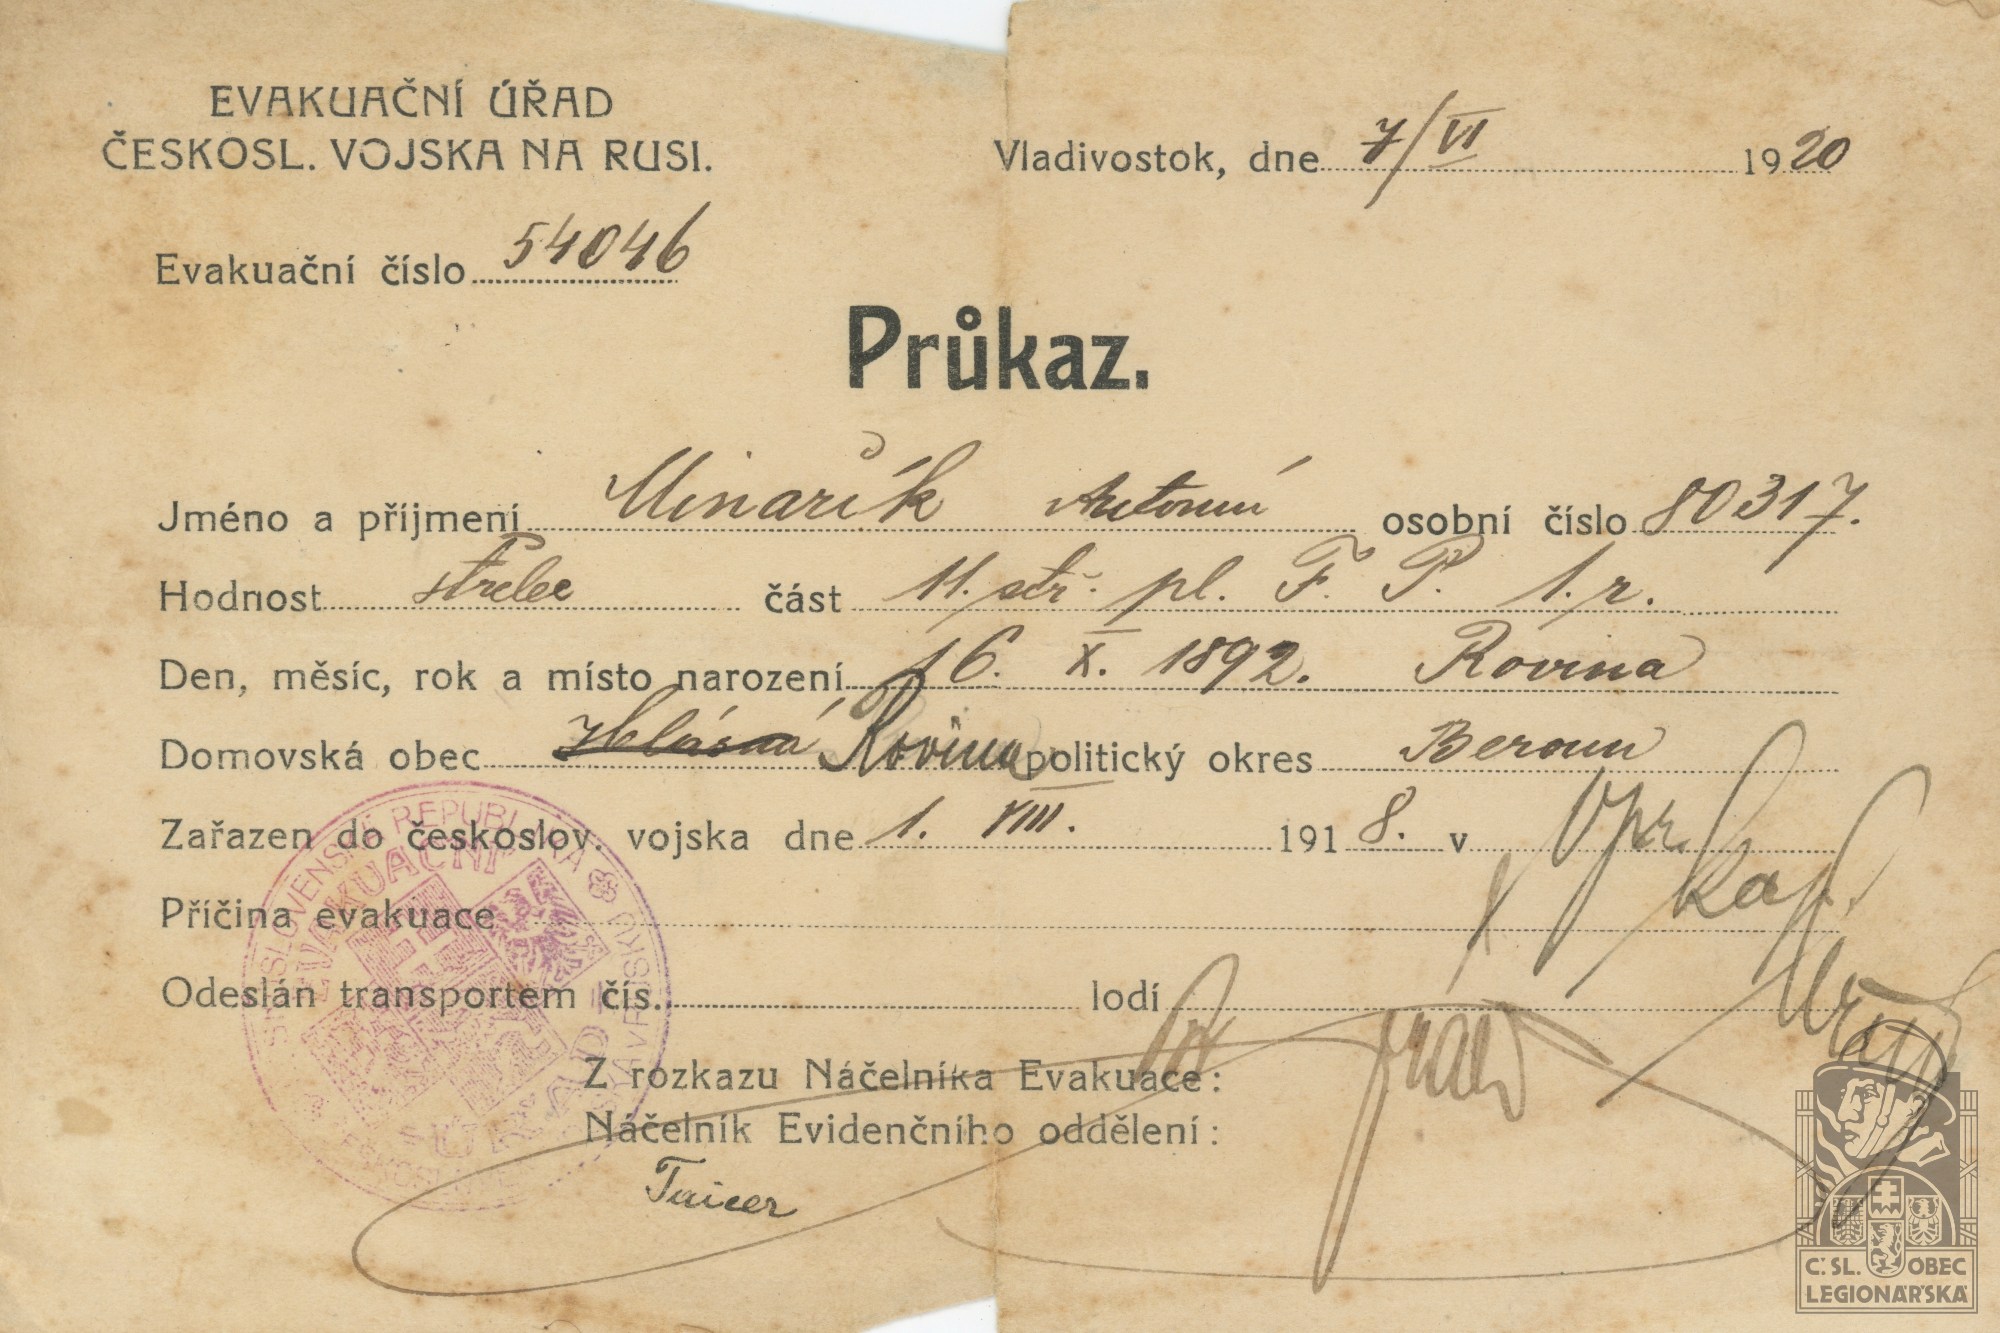 EVAKUAČNÍ ÚŘAD
ČESKOSL. VOJSKA NA RUSI.
Vladivostok, dne 7/VI 1920
Evakuační číslo 54046
Průkaz.
Jméno a příjmení Minařík Antonín osobní číslo 80317.
Hodnost střelec část 11. stř. pl. F. P. 1. r.
Den, měsíc, rok a místo narození 16. X. 1892. Rovina
Domovská obec Hlásná Rovina politický okres Beroun
Zařazen do českoslov. vojska dne 1. VIII. 1918. v
Příčina evakuace
Odeslán transportem čís. lodí
Z rozkazu Náčelníka Evakuace:
Náčelník Evidenčního oddělení:
EVAKUAČNÍ
ÚŘAD
Č. SL. OBEC
LEGIONÁŘSKÁ